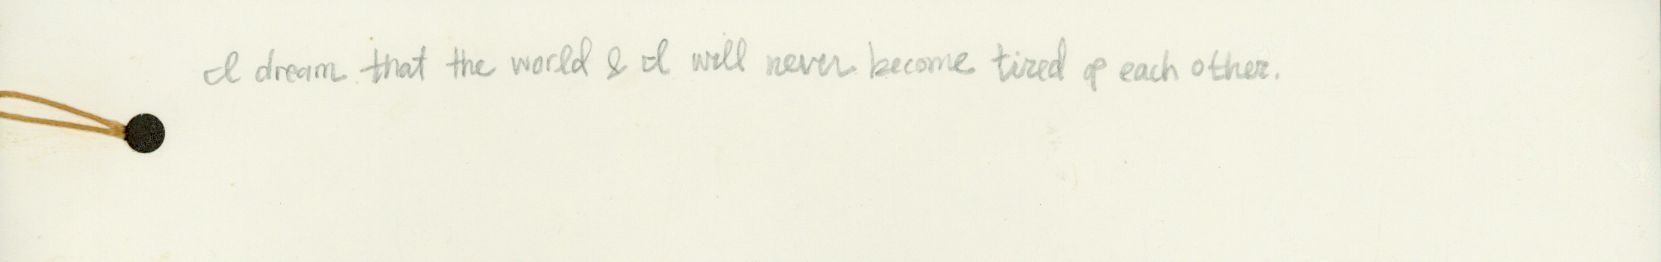 I dream that the world & I will never become tired of each other.